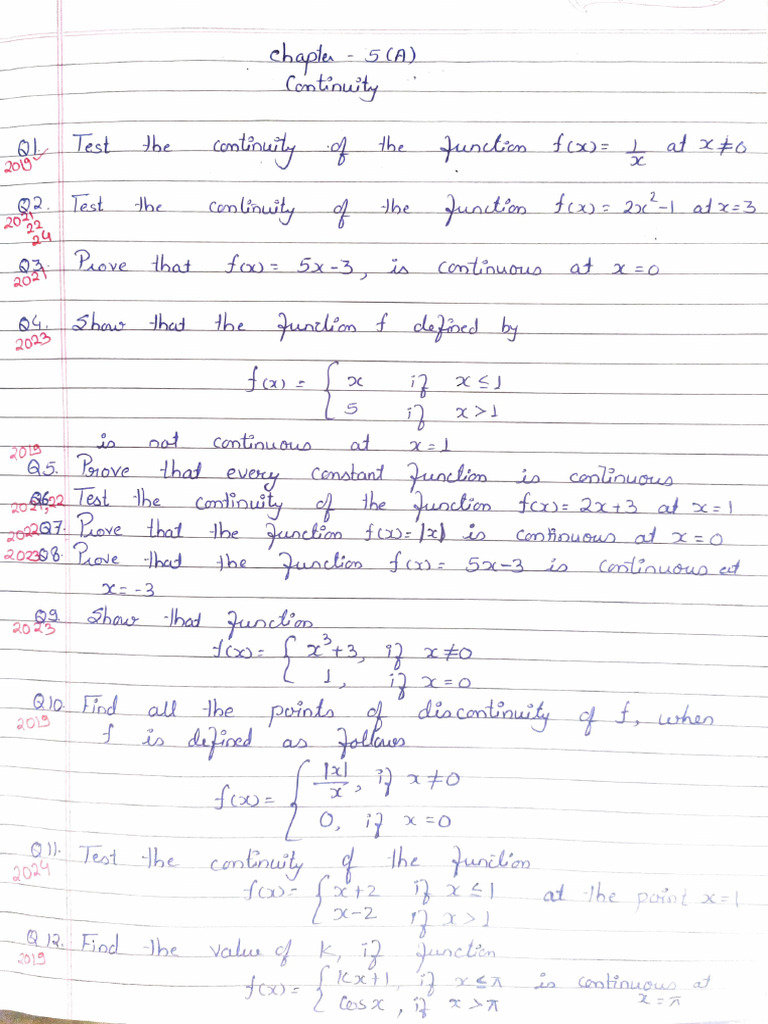 Chapter - 5(A)
Continuity
Q1. Test the continuity of the function f(x) = 1/x at x ≠ 0
2019
Q2. Test the continuity of the function f(x) = 2x²-1 at x=3
2021
22
24
Q3. Prove that f(x) = 5x-3, is continuous at x=0
2021
Q4. Show that the function f defined by
2023
f(x) = { x if x ≤ 1
5 if x > 1
is not continuous at x=1
2019
Q5. Prove that every constant function is continuous
Q6. Test the continuity of the function f(x) = 2x+3 at x=1
2021,22
2022 Q7. Prove that the function f(x) = |x| is continuous at x=0
2023 Q8. Prove that the function f(x) = 5x-3 is continuous at
x=-3
Q9. Show that function
2023
f(x) = { x³+3, if x≠0
1, if x=0
Q10. Find all the points of discontinuity of f, when
2019
f is defined as follows
f(x) = { |x|/x, if x≠0
0, if x=0
Q11. Test the continuity of the function
2024
f(x) = { x+2 if x ≤ 1 at the point x=1
x-2 if x > 1
Q12. Find the value of K, if function
2019
f(x) = { Kx+1, if x ≤ π is continuous at
cosx, if x > π x=π